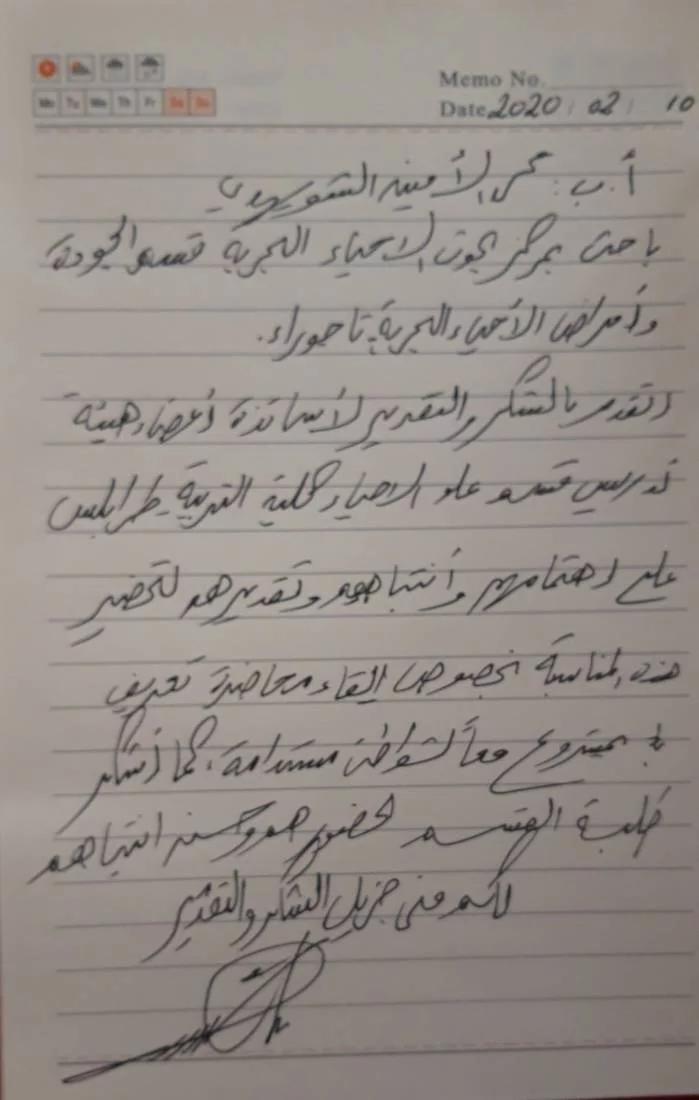 Memo No.
Date 2020 / 02 / 10
Mo Tu We Th Fr Sa Su
أ.ب: الأمين الشويهدي
باحث بمركز بحوث الاحياء البحرية قسم الجودة
وأمراض الأحياء البحرية تاجوراء.
اتقدم بالشكر والتقدير لأساتذة أعضاء هيئة
تدريس قسم علم الاحياء كلية التربية طرابلس
على اهتمامهم وأنتباههم وتقديرهم لتحضير
هذه المناسبة بخصوص القاء محاضرة تعريف
بمشروع معاً لشواطئ مستدامة، كما أشكر
طلبة القسم لحضورهم وحسن انتباههم
لكم مني جزيل الشكر والتقدير